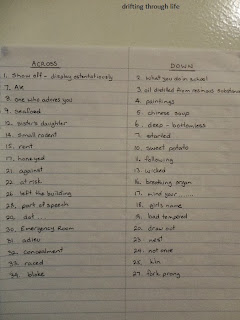 drifting through life
ACROSS
1. Show off - display ostentatiously
7. Are
8. one who adores you
9. seafood
12. sister's daughter
14. Small rodent
15. rent
17. honeyed
21. against
22. at risk
26. left the building
28. part of speech
29. dot
30. Emergency Room
31. adieu
32. concealment
33. raced
34. bloke
DOWN
2. What you do in school
3. oil distilled from resinous substance
4. paintings
5. chinese soup
6. deep - bottomless
7. started
10. sweet potato
11. following
13. wicked
16. breathing organ
17. mind your
18. girls name
19. bad tempered
20. draw out
23. nest
24. not once
25. kiln
27. fork prong